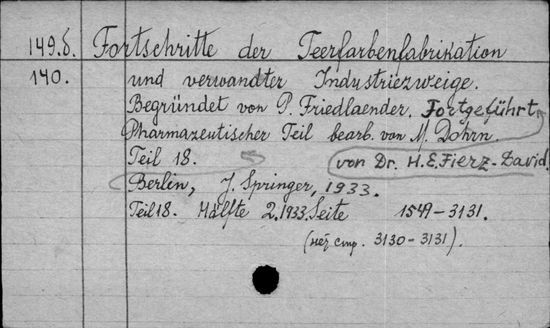 149.б. Fortschritte der Teerfarbenfabrikation
140. und verwandter Industriezweige.
Begründet von P. Friedlaender. Fortgeführt
Pharmazeutischer Teil bearb. von M. Dohrn.
Teil 18. von Dr. H.E. Fierz-David.
Berlin, J. Springer, 1933.
Teil 18. Hälfte 2. 1933. Seite 1549-3131.
(нет стр. 3130-3131).